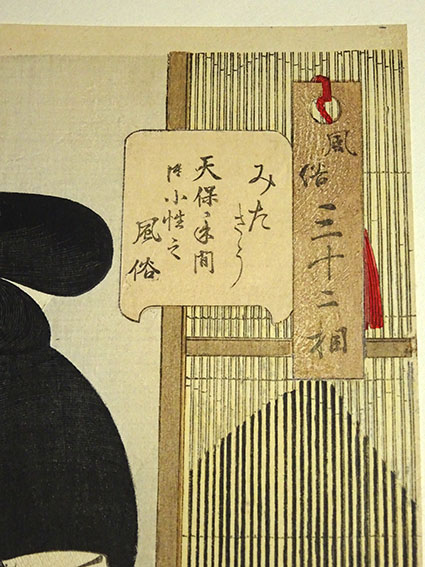 風俗三十二相
みたさう
天保年間
御小性之
風俗